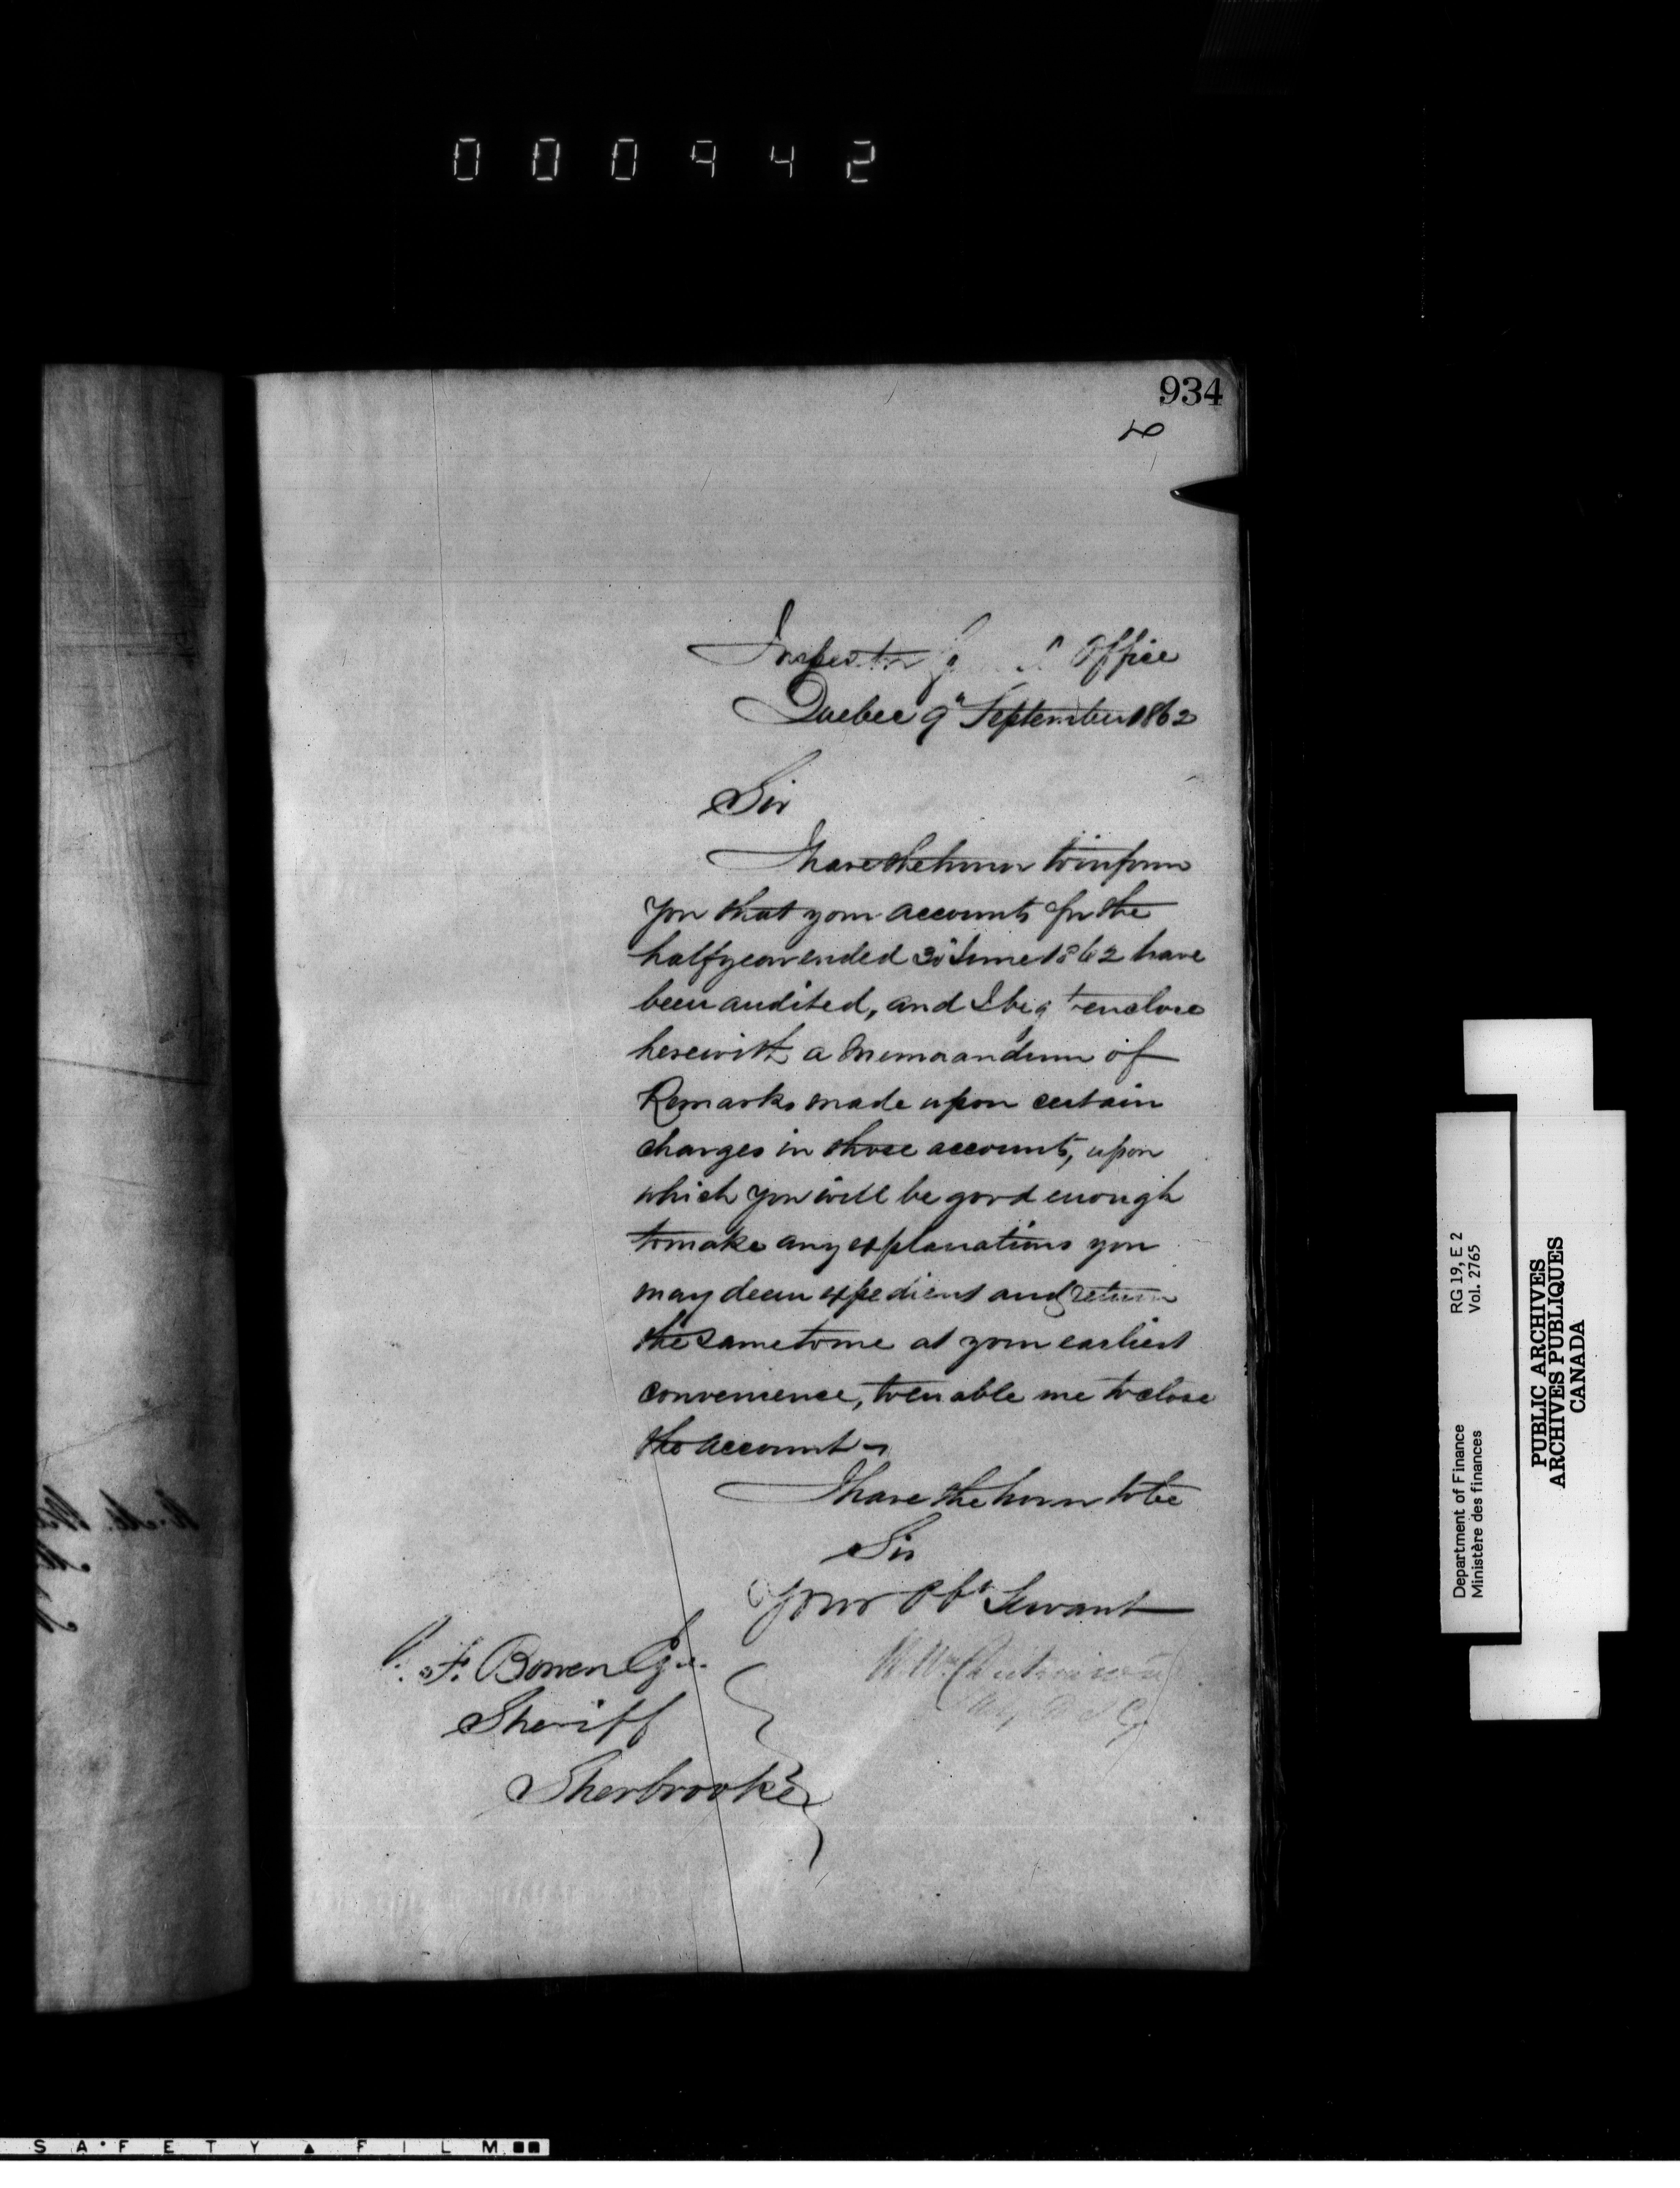 000942
934
Inspector Office
Quebec 9" September 1862
Sir
I have the honor to inform
you that your accounts for the
half year ended 30" June 1862 have
been audited, and I beg to enclose
herewith a Memorandum of
Remarks made upon certain
charges in those accounts, upon
which you will be good enough
to make any explanations you
may deem expedient and return
the same to me at your earliest
convenience, to enable me to close
the account
I have the honor to be
Sir
Your Obt Servant
F. Bowen Esqr.
Sheriff
Sherbrooke
Department of Finance RG 19, E 2
Ministère des finances Vol. 2765
PUBLIC ARCHIVES
ARCHIVES PUBLIQUES
CANADA
SAFETY FILM